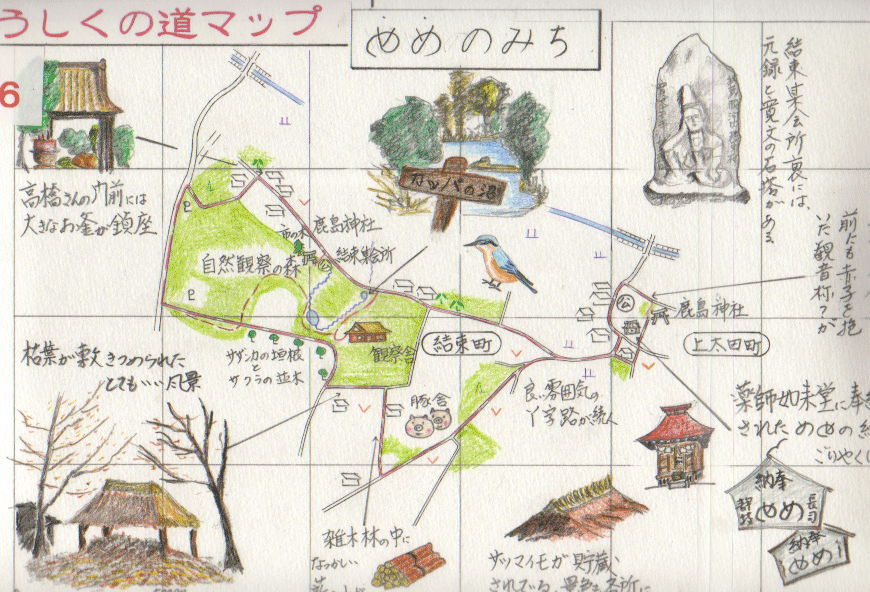 うしくの道マップ
めめのみち
6
結束集会所裏には、
元録と寛文の石塔がある
前にも赤子を抱
いた観音様?が
高橋さんの門前には
大きなお釜が鎮座
カッパの沼
市の木
鹿島神社
結束集会所
自然観察の森
P
P
観察舎
結束町
鹿島神社
上太田町
枯葉が敷きつめられた
とても・・・いい風景
サザンカの垣根
と
サクラの並木
豚舎
良い雰囲気の
丫字路が続く
薬師如来堂に奉納
されためめの絵
ごりやく
雑木林の中に
なつかしい
サツマイモが貯蔵
されている
納奉
めめ
納奉
めめ